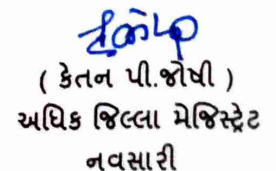 ( કેતન પી.જોષી )
અધિક જિલ્લા મેજિસ્ટ્રેટ
નવસારી